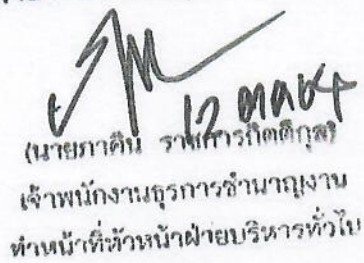 12 ตค 64
(นายภาคิน
เจ้าพนักงานธุรการชำนาญงาน
ทำหน้าที่หัวหน้าฝ่ายบริหารทั่วไป